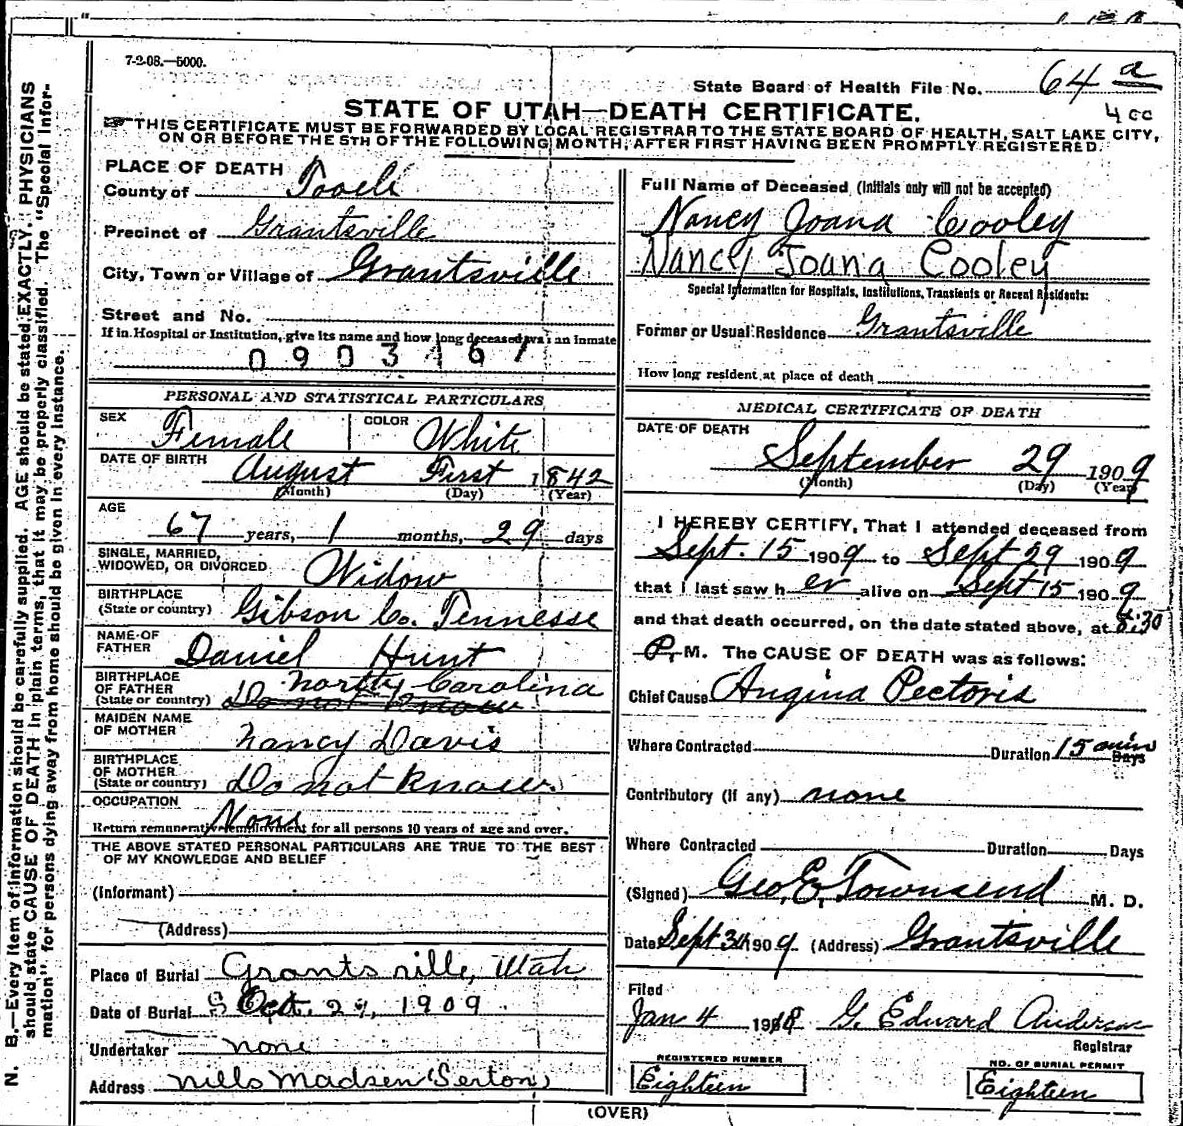 7-2-08.—5000.
State Board of Health File No. 64 a
4 cc
STATE OF UTAH—DEATH CERTIFICATE.
THIS CERTIFICATE MUST BE FORWARDED BY LOCAL REGISTRAR TO THE STATE BOARD OF HEALTH, SALT LAKE CITY,
ON OR BEFORE THE 5TH OF THE FOLLOWING MONTH, AFTER FIRST HAVING BEEN PROMPTLY REGISTERED.
N. B.—Every item of information should be carefully supplied. AGE should be stated EXACTLY. PHYSICIANS
should state CAUSE OF DEATH in plain terms, that it may be properly classified. The "Special Infor-
mation" for persons dying away from home should be given in every instance.
PLACE OF DEATH
County of Tooele
Precinct of Grantsville
City, Town or Village of Grantsville
Street and No.
If in Hospital or Institution, give its name and how long deceased was an inmate
0903167
PERSONAL AND STATISTICAL PARTICULARS
SEX Female COLOR White
DATE OF BIRTH August First 1842
(Month) (Day) (Year)
AGE
67 years, 1 months, 29 days
SINGLE, MARRIED,
WIDOWED, OR DIVORCED Widow
BIRTHPLACE
(State or country) Gibson Co. Tennesse
NAME OF
FATHER Daniel Hunt
BIRTHPLACE
OF FATHER North Carolina
(State or country) Do not Know
MAIDEN NAME
OF MOTHER Nancy Davis
BIRTHPLACE
OF MOTHER
(State or country) Do not Know.
OCCUPATION None
Return remunerative employment for all persons 10 years of age and over.
THE ABOVE STATED PERSONAL PARTICULARS ARE TRUE TO THE BEST
OF MY KNOWLEDGE AND BELIEF
(Informant)
(Address)
Place of Burial Grantsville, Utah
Date of Burial Oct. 2, 1909
Undertaker none
Address Nills Madsen (Sexton)
Full Name of Deceased (Initials only will not be accepted)
Nancy Joana Cooley
Nancy Joana Cooley
Special Information for Hospitals, Institutions, Transients or Recent Residents:
Former or Usual Residence Grantsville
How long resident at place of death
MEDICAL CERTIFICATE OF DEATH
DATE OF DEATH
September 29 1909
(Month) (Day) (Year)
I HEREBY CERTIFY, That I attended deceased from
Sept. 15 1909 to Sept 29 1909
that I last saw her alive on Sept 15 1909
and that death occurred, on the date stated above, at 8:30
P. M. The CAUSE OF DEATH was as follows:
Chief Cause Angina Pectoris
Where Contracted Duration 15 min Days
Contributory (if any) none
Where Contracted Duration Days
(Signed) Geo. E. Townsend M. D.
Date Sept 30 1909. (Address) Grantsville
Filed
Jan 4 19 G. Edward Anderson
Registrar
REGISTERED NUMBER
Eighteen
NO. OF BURIAL PERMIT
Eighteen
(OVER)